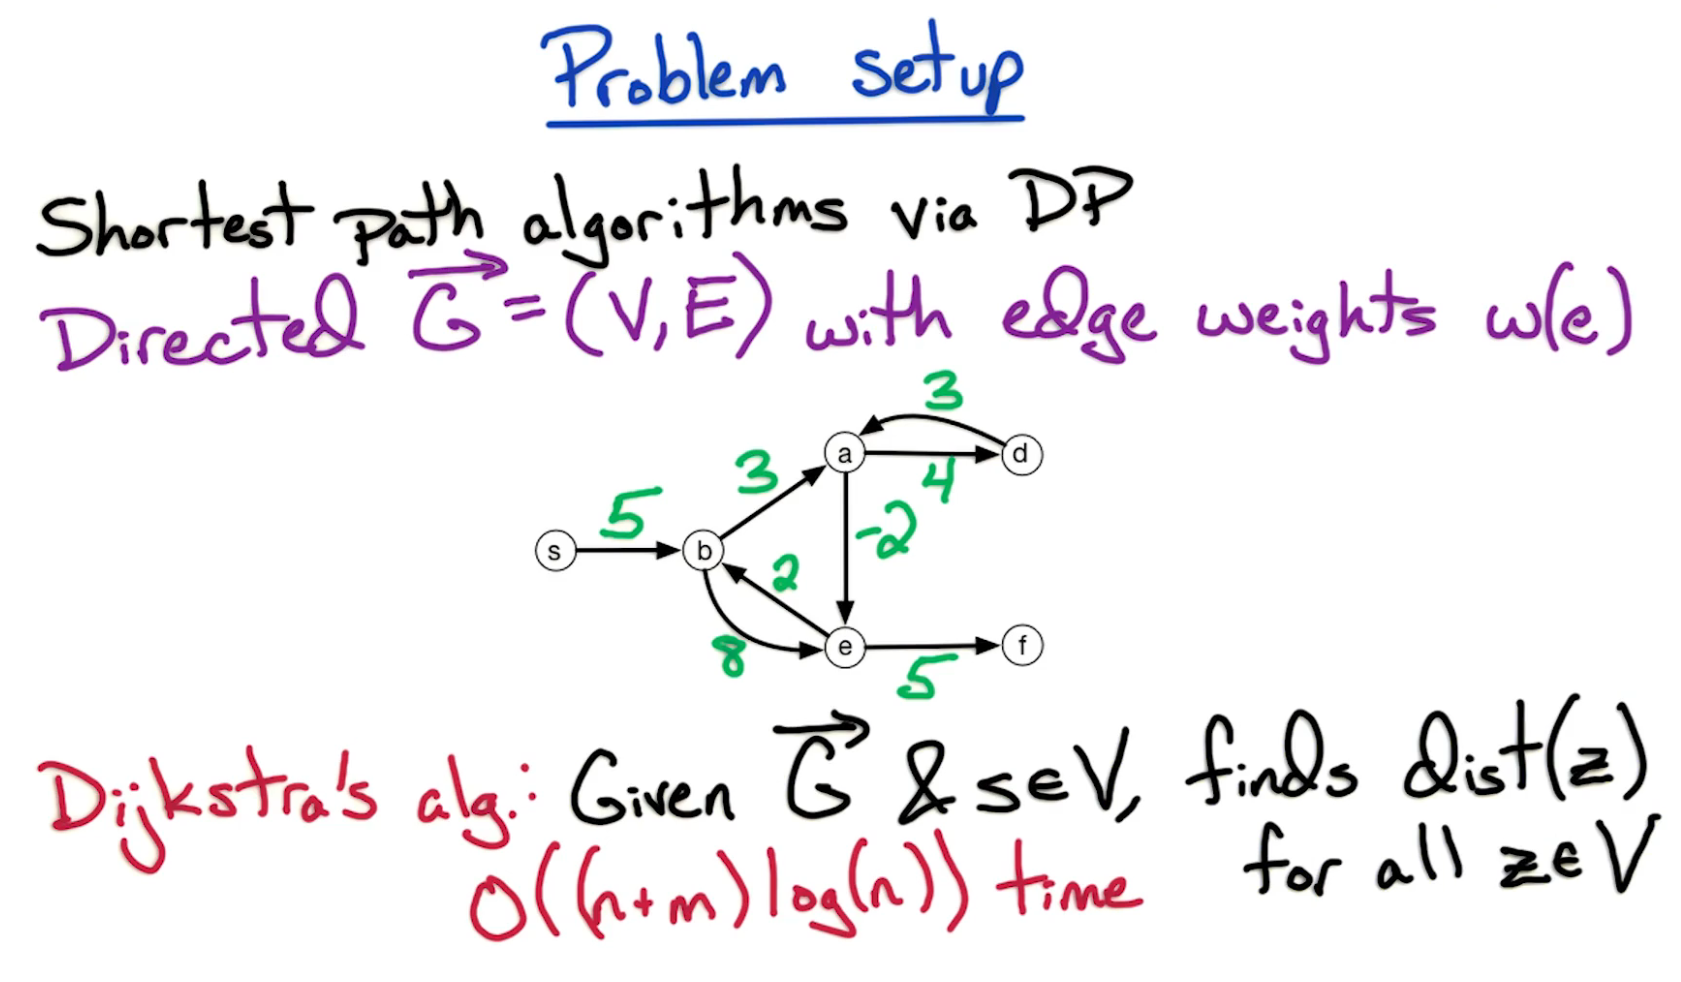 Problem setup
Shortest path algorithms via DP
Directed G⃗ = (V, E) with edge weights w(e)
3
a d
3 4
5 -2
s b
2
8 e f
5
Dijkstra's alg.: Given G⃗ & s∈V, finds dist(z)
for all z∈V
O((n+m)log(n)) time